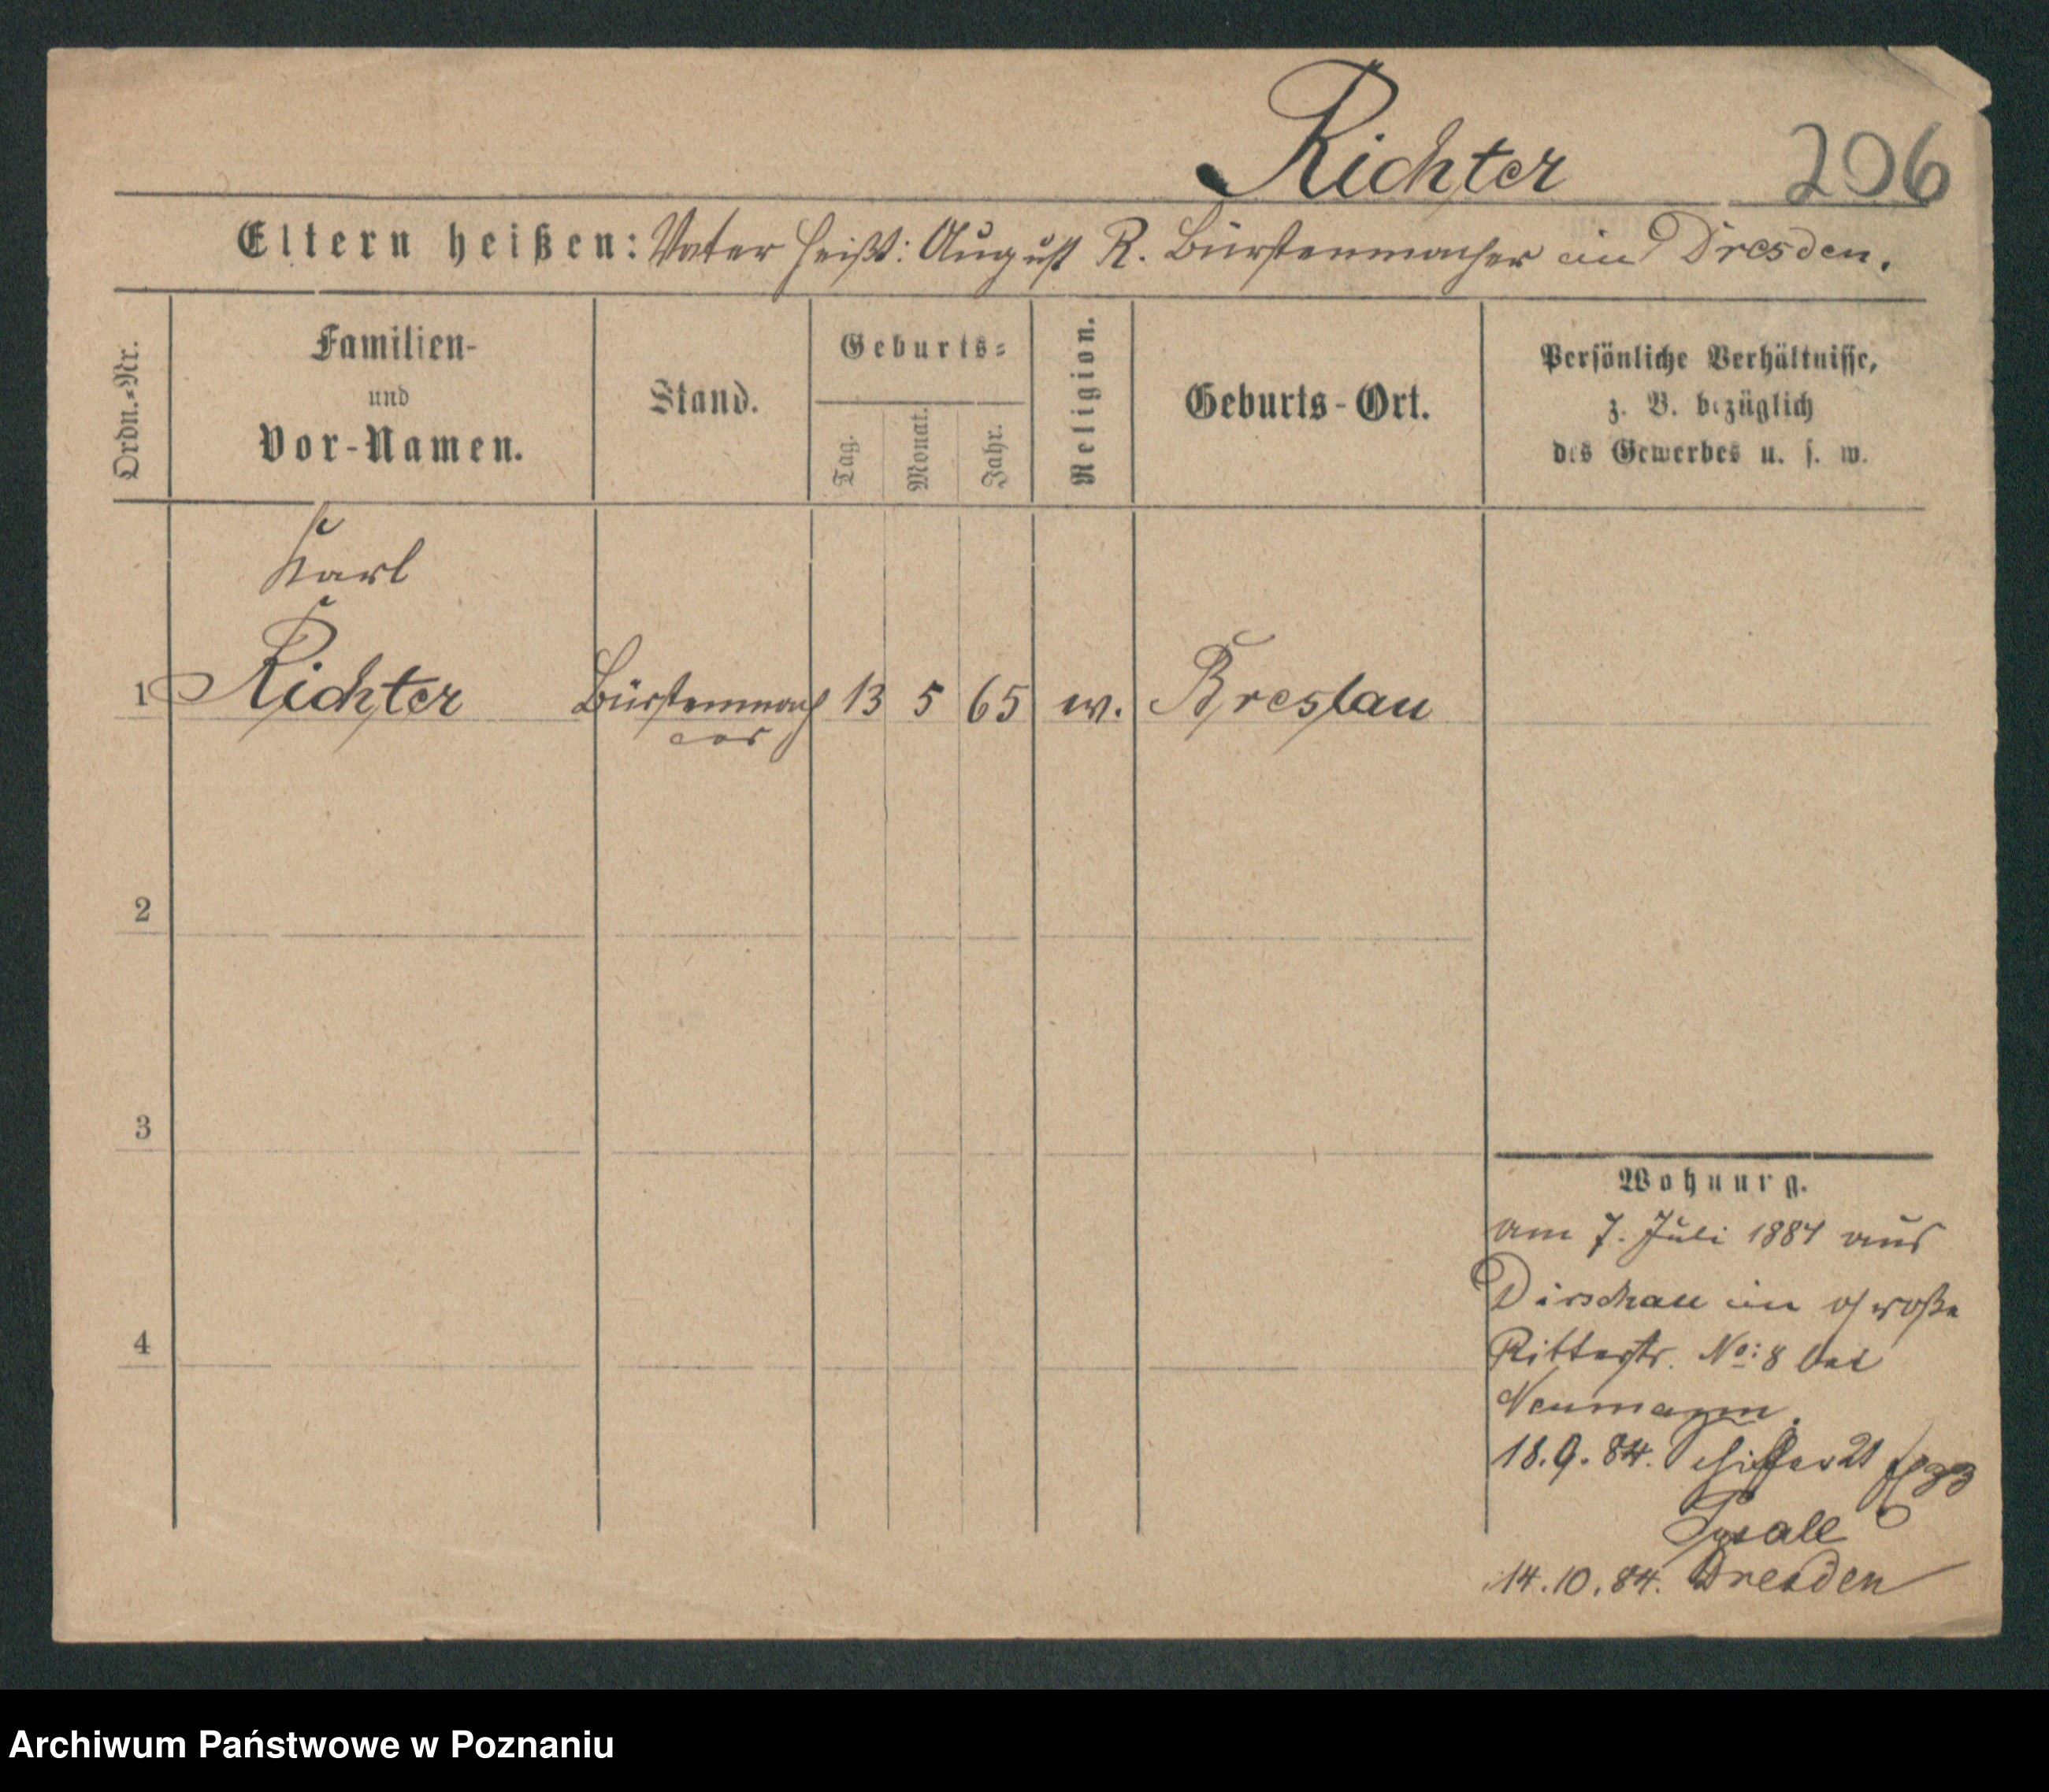 Richter 206
Eltern heißen: Vater heißt: August R. Bürstenmacher in Dresden.
Ordn.-Nr.
Familien-
und
Vor-Namen.
Stand.
Geburts-
Tag.
Monat.
Jahr.
Religion.
Geburts-Ort.
Persönliche Verhältnisse,
z. B. bezüglich
des Gewerbes u. s. w.
Karl
1 Richter Bürstenmach 13 5 65 ev. Breslau
er
2
3
4
Wohnung.
am 7. Juli 1884 aus
Dirschau in Große
Ritterstr. No: 8 bei
Neumann.
18.9.84. Schifferstr 21
14.10.84. Dresden
Archiwum Państwowe w Poznaniu